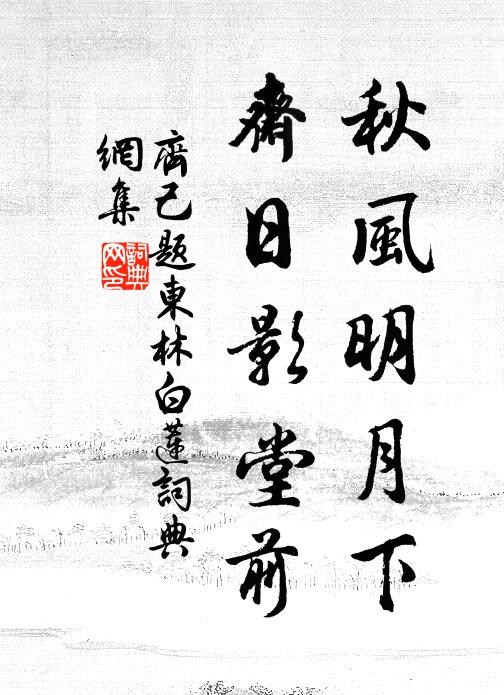 秋風明月下
齋日影堂前
齊己題東林白蓮詞典
網集
詞典
网印